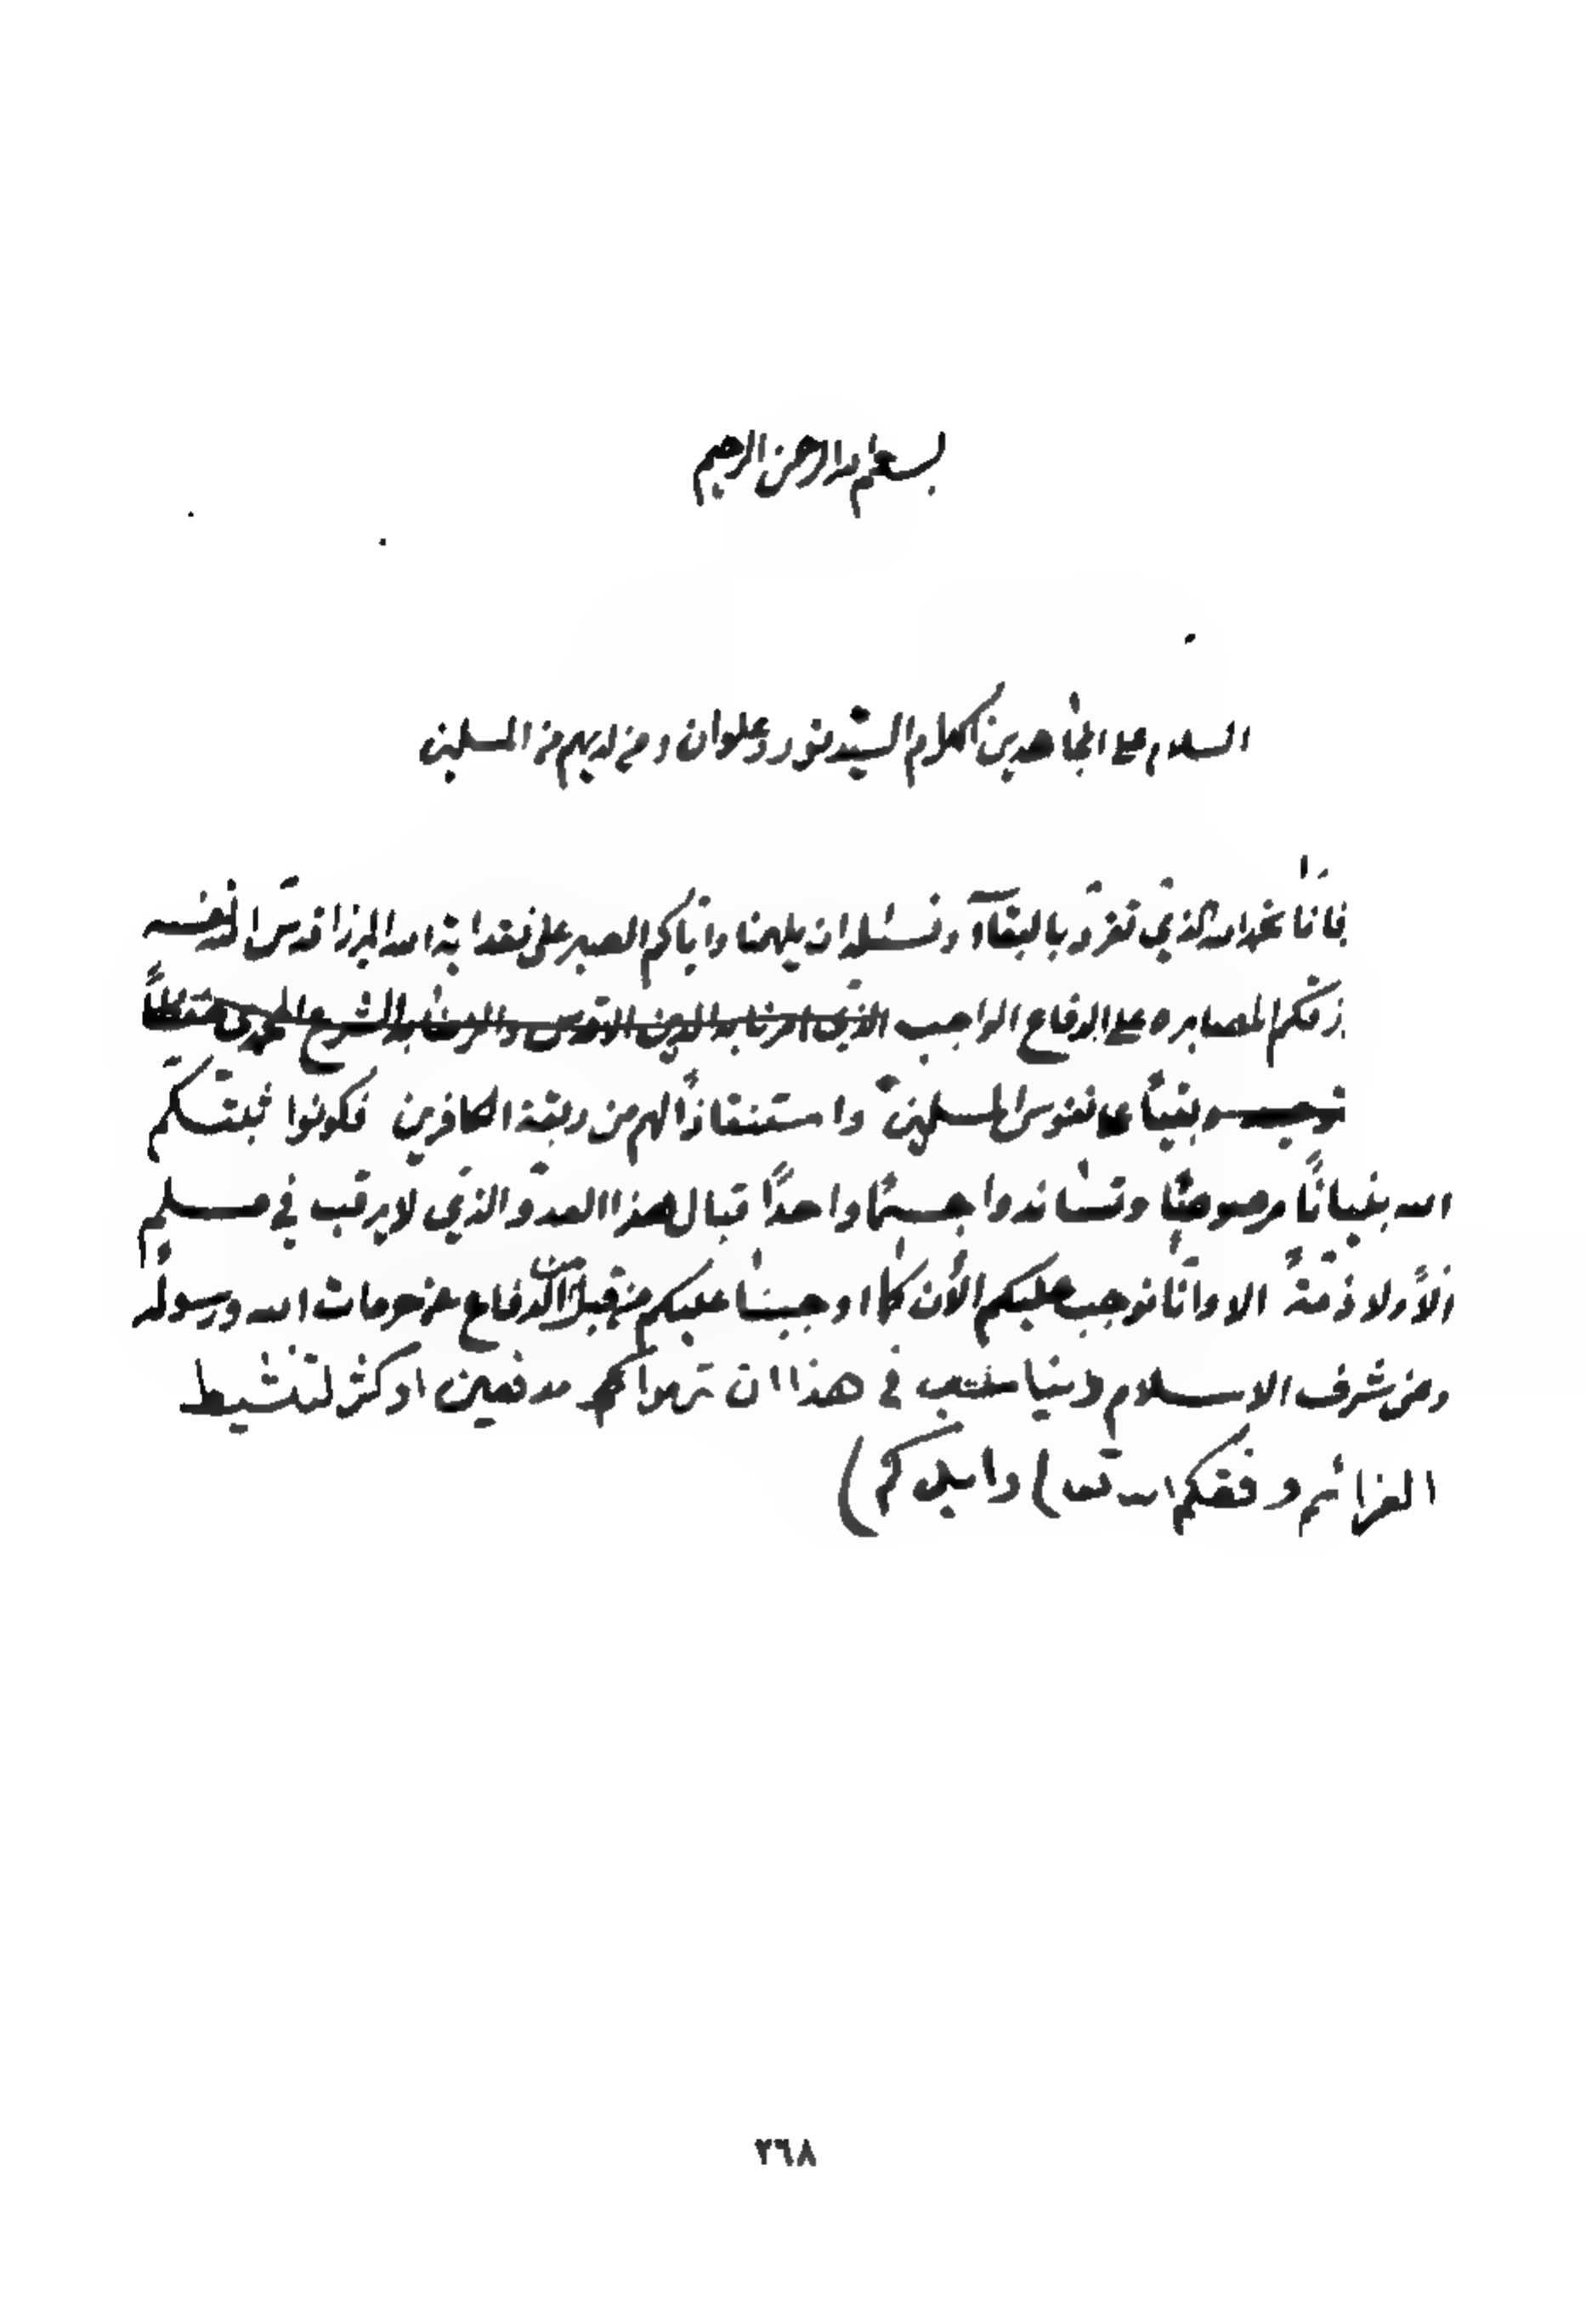 بسم الله الرحمن الرحيم
السلام على المجاهدين الكرام السيد نور وعلوان ومن لديهم من المسلمين
فانا نحمد الله الذي تفرد بالبقاء ونسئله ان يلهمنا واياكم الصبر على فقد اية الله الميرزا قدس الله نفسه
المصابره على الدفاع الواجب الذي امرنا به الدين الاقدس
نفوس المسلمين واستنقاذاً لهم من ربقة الكافرين فكونوا ثبتكم
الله بنياناً مرصوصاً وتساندوا جسماً واحداً قبال هذا العدو الذي لا يرقب في مسلم
الاً ولا ذمةً الا وانا نوجب عليكم الأن كما اوجبنا عليكم من قبل الدفاع عن حرمات الله ورسوله
وعن شرف الاسلام دنيا في هذا ان اوكثر لتنشيط
العزائم وفقكم الله تعـ) وايدكم)
٣٦٨